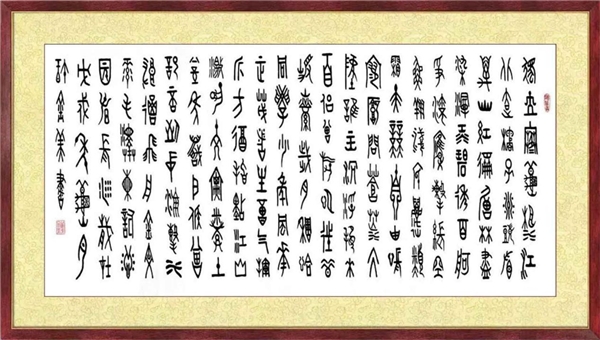 獨立寒秋湘江
北去橘子洲頭看
萬山紅遍層林盡
染漫江碧透百舸
爭流鷹擊長空
魚翔淺底萬類
霜天競自由悵
寥廓問蒼茫大
地誰主沉浮攜來
百侶曾游憶往昔
崢嶸歲月稠恰
同學少年風華
正茂書生意氣揮
斥方遒指點江山
激揚文字糞土
當年萬戶侯曾
記否到中流擊水
浪遏飛舟
毛澤東詞沁
園春長沙歲在
戊戌
書